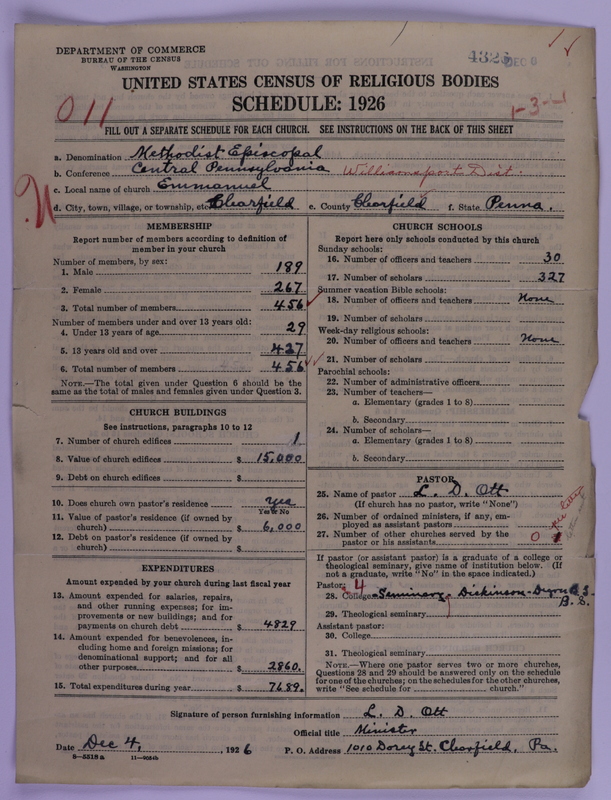 DEPARTMENT OF COMMERCE
BUREAU OF THE CENSUS
WASHINGTON
4325 DEC
UNITED STATES CENSUS OF RELIGIOUS BODIES
SCHEDULE: 1926
011
1-3-1
FILL OUT A SEPARATE SCHEDULE FOR EACH CHURCH. SEE INSTRUCTIONS ON THE BACK OF THIS SHEET
a. Denomination Methodist Episcopal
b. Conference Central Pennsylvania Williamsport Dist.
c. Local name of church Emmanuel
d. City, town, village, or township, etc. Clearfield e. County Clearfield f. State Penna.
MEMBERSHIP
Report number of members according to definition of
member in your church
Number of members, by sex:
1. Male 189
2. Female 267
3. Total number of members 456
Number of members under and over 13 years old:
4. Under 13 years of age 29
5. 13 years old and over 427
6. Total number of members 456
NOTE.—The total given under Question 6 should be the
same as the total of males and females given under Question 3.
CHURCH BUILDINGS
See instructions, paragraphs 10 to 12
7. Number of church edifices 1
8. Value of church edifices $ 15,000
9. Debt on church edifices $
10. Does church own pastor's residence Yes
Yes or No
11. Value of pastor's residence (if owned by
church) $ 6,000
12. Debt on pastor's residence (if owned by
church) $
EXPENDITURES
Amount expended by your church during last fiscal year
13. Amount expended for salaries, repairs,
and other running expenses; for im-
provements or new buildings; and for
payments on church debt $ 4829
14. Amount expended for benevolences, in-
cluding home and foreign missions; for
denominational support; and for all
other purposes $ 2860.
15. Total expenditures during year $ 7689.
CHURCH SCHOOLS
Report here only schools conducted by this church
Sunday schools:
16. Number of officers and teachers 30
17. Number of scholars 327
Summer vacation Bible schools:
18. Number of officers and teachers None
19. Number of scholars
Week-day religious schools:
20. Number of officers and teachers None
21. Number of scholars
Parochial schools:
22. Number of administrative officers
23. Number of teachers—
a. Elementary (grades 1 to 8)
b. Secondary
24. Number of scholars—
a. Elementary (grades 1 to 8)
b. Secondary
PASTOR
25. Name of pastor L. D. Ott
(If church has no pastor, write "None")
26. Number of ordained ministers, if any, em-
ployed as assistant pastors
27. Number of other churches served by the
pastor or his assistants 0
If pastor (or assistant pastor) is a graduate of a college or
theological seminary, give name of institution below. (If
not a graduate, write "No" in the space indicated.)
Pastor: 4
28. College Seminary Dickinson
B. S.
29. Theological seminary
Assistant pastor:
30. College
31. Theological seminary
NOTE.—Where one pastor serves two or more churches,
Questions 28 and 29 should be answered only on the schedule
for one of the churches; on the schedules for the other churches,
write "See schedule for church."
Signature of person furnishing information L. D. Ott
Official title Minister
Date Dec 4, 1926 P. O. Address 1010 Dorey St. Clearfield, Pa.
8—5518a 11—9024b